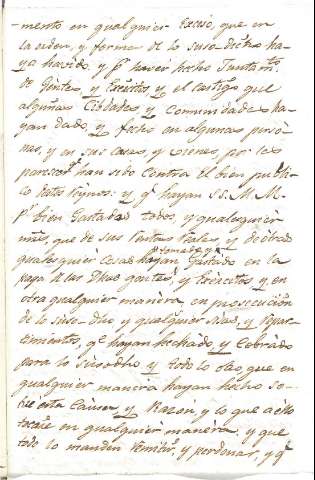 -mento en qualquier exceso, que en
la orden, y forma de lo suso dicho ha-
ya havido, y pr. haver hecho Juntamto.
de Gentes, y Exercitos, y el castigo que
algunas Cibdades y Comunidades ha-
yan dado, y fecho en algunas perso-
nas, y en sus casas, y vienes, por les
parescer qe. han sido contra el bien publi-
co destos Reynos: y qe. hayan SS. M.M.
pr. bien Gastadas todos, y qualesquier
mrs, que de sus Rentas Reales, y de otras
qualesquier cosas hayan Gastado en la
paga de las Dhas gentes, y Exercitos, y en
otra qualquier manera en prosecución
de lo suso-dho y qualquier sisas, y Repar-
timientos, qe. hayan hechado, y Cobrado
para lo susodho, y todo lo otro, que en
qualquier manera hayan hecho so-
bre esta Causa, y Razon, y lo que a ello
tocare en qualquier manera, y que
todo lo manden remitir, y perdonar, y qe.